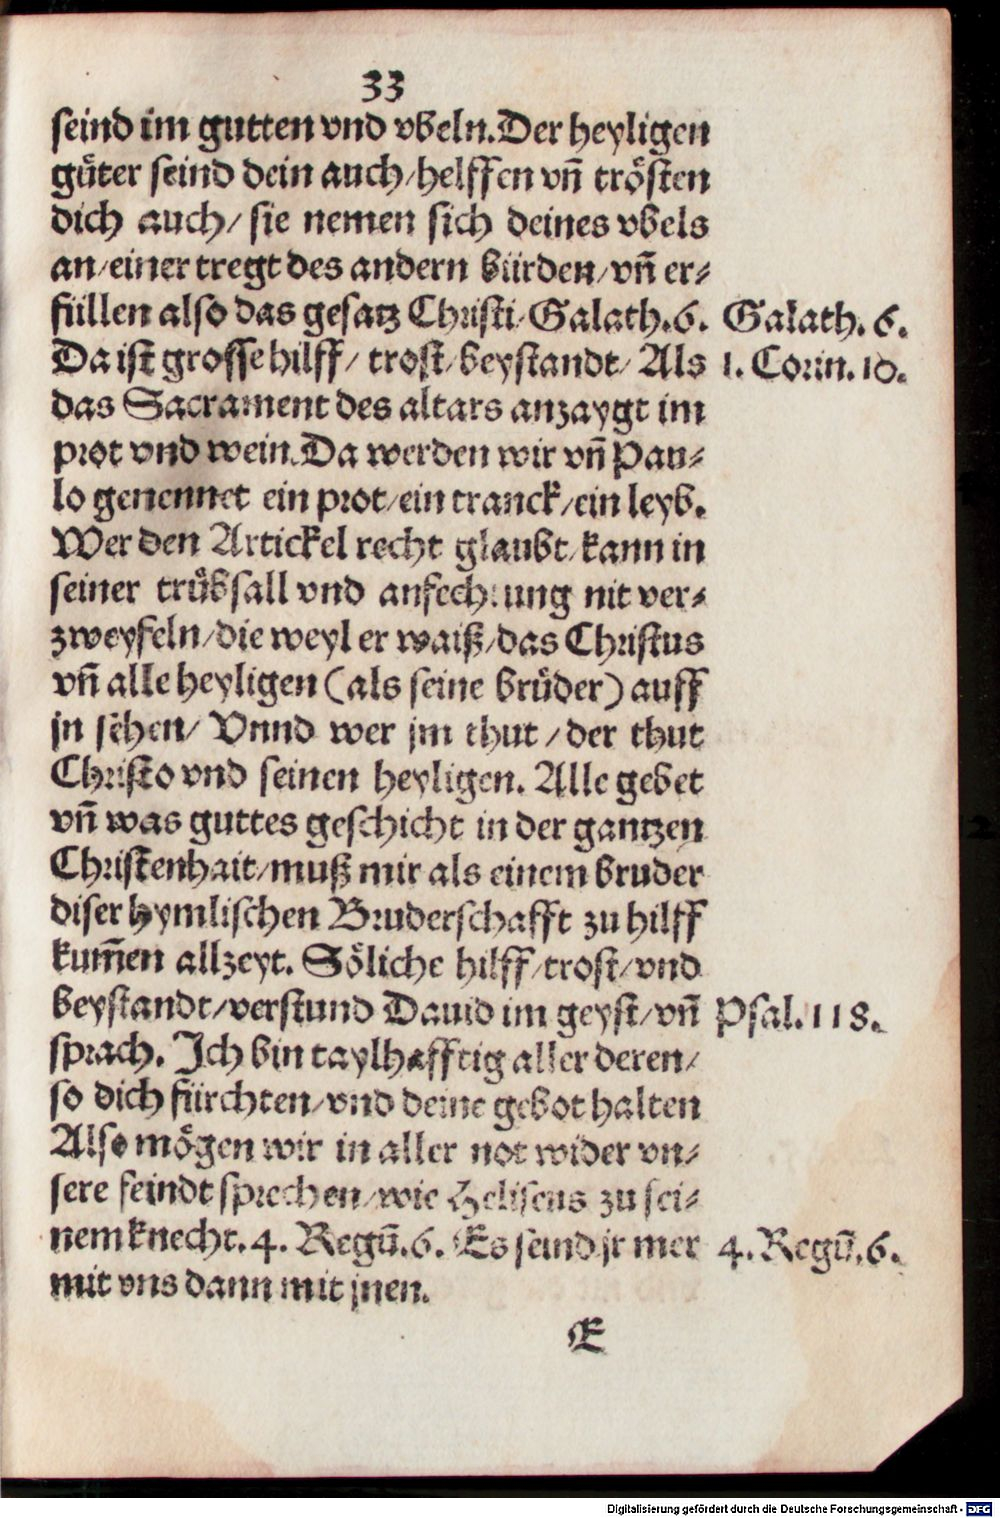 33
seind im gutten vnd vbeln. Der heyligen
güter seind dein auch/helffen vn̄ trösten
dich auch/ sie nemen sich deines vbels
an/einer tregt des andern bürden/vn̄ er⸗
füllen also das gesatz Christi/Galath.6. Galath. 6.
Da ist grosse hilff/ trost/beystandt/ Als 1. Corin. 10.
das Sacrament des altars anzaygt im
prot vnd wein. Da werden wir vn̄ Pau⸗
lo genennet ein prot/ein tranck/ein leyb.
Wer den Artickel recht glaubt/kann in
seiner trübsall vnd anfechtung nit ver⸗
zweyfeln/die weyl er waiß/das Christus
vn̄ alle heyligen (als seine brüder) auff
jn sehen/ Vnnd wer jm thut /der thut
Christo vnd seinen heyligen. Alle gebet
vn̄ was guttes geschicht in der gantzen
Christenhait/muß mir als einem bruder
diser hymlischen Bruderschafft zu hilff
kum̄en allzeyt. Söliche hilff/trost/vnd
beystandt/verstund Dauid im geyst/vn̄ Psal. 118.
sprach. Ich bin taylhafftig aller deren/
so dich fürchten/vnd deine gebot halten
Also mögen wir in aller not wider vn⸗
sere feindt sprechen/wie Heliseus zu sei⸗
nem knecht. 4. Regū.6. Es seind jr mer 4. Regū.6.
mit vns dann mit jnen.
E
Digitalisierung gefördert durch die Deutsche Forschungsgemeinschaft - DFG